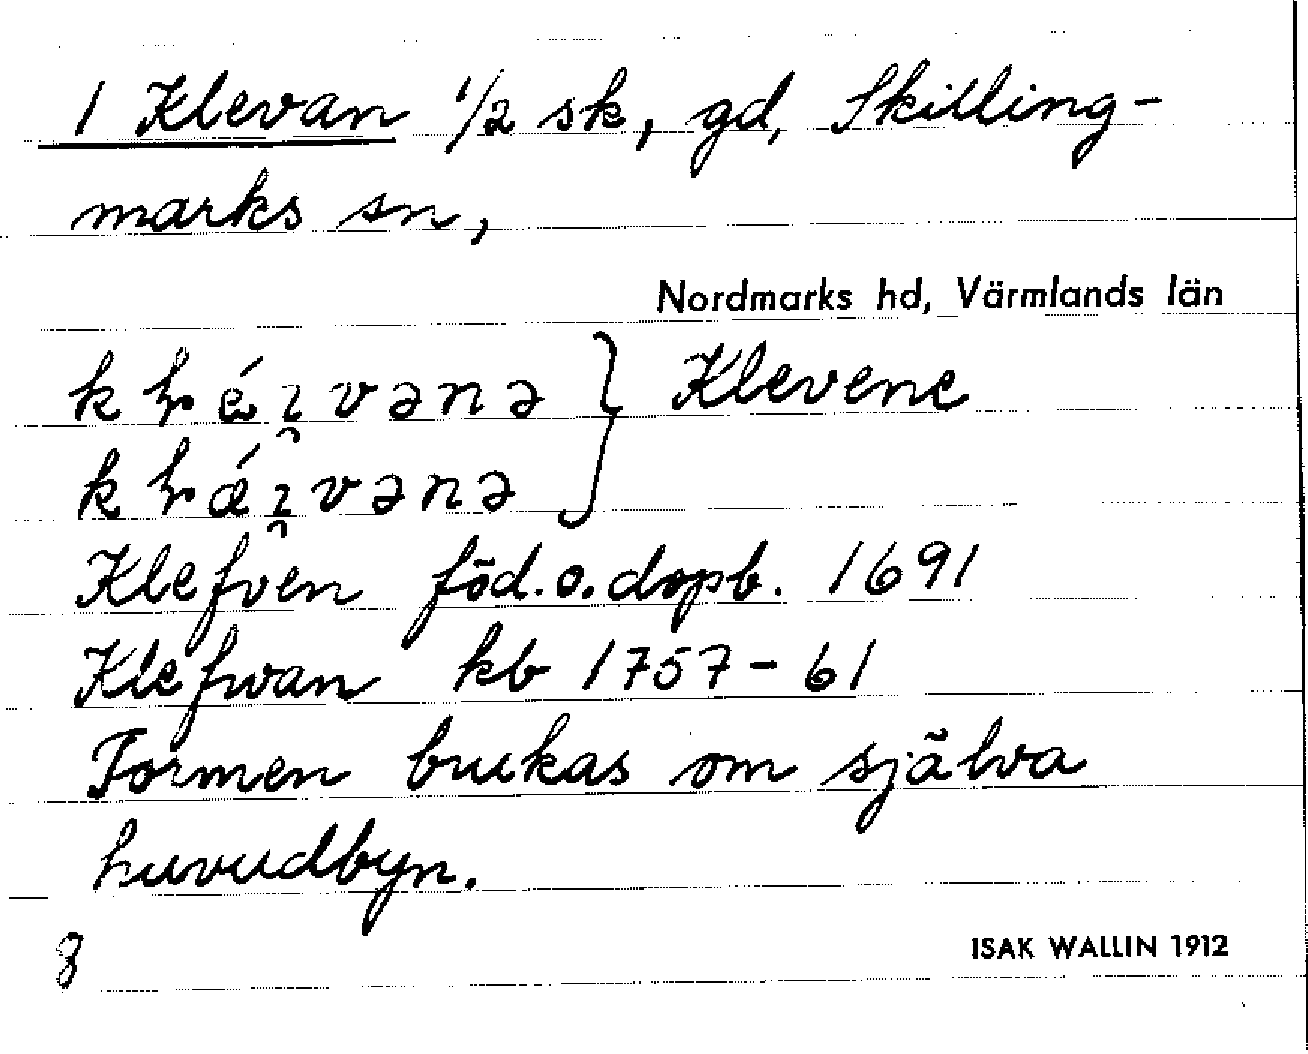 1 Klevan 1/2 sk, gd, Skilling-
marks sn,
Nordmarks hd, Värmlands län
Klevene
Klefven föd.o.dopb. 1691
Klefwan kb 1757-61
Formen brukas om själva
huvudbyn.
ISAK WALLIN 1912